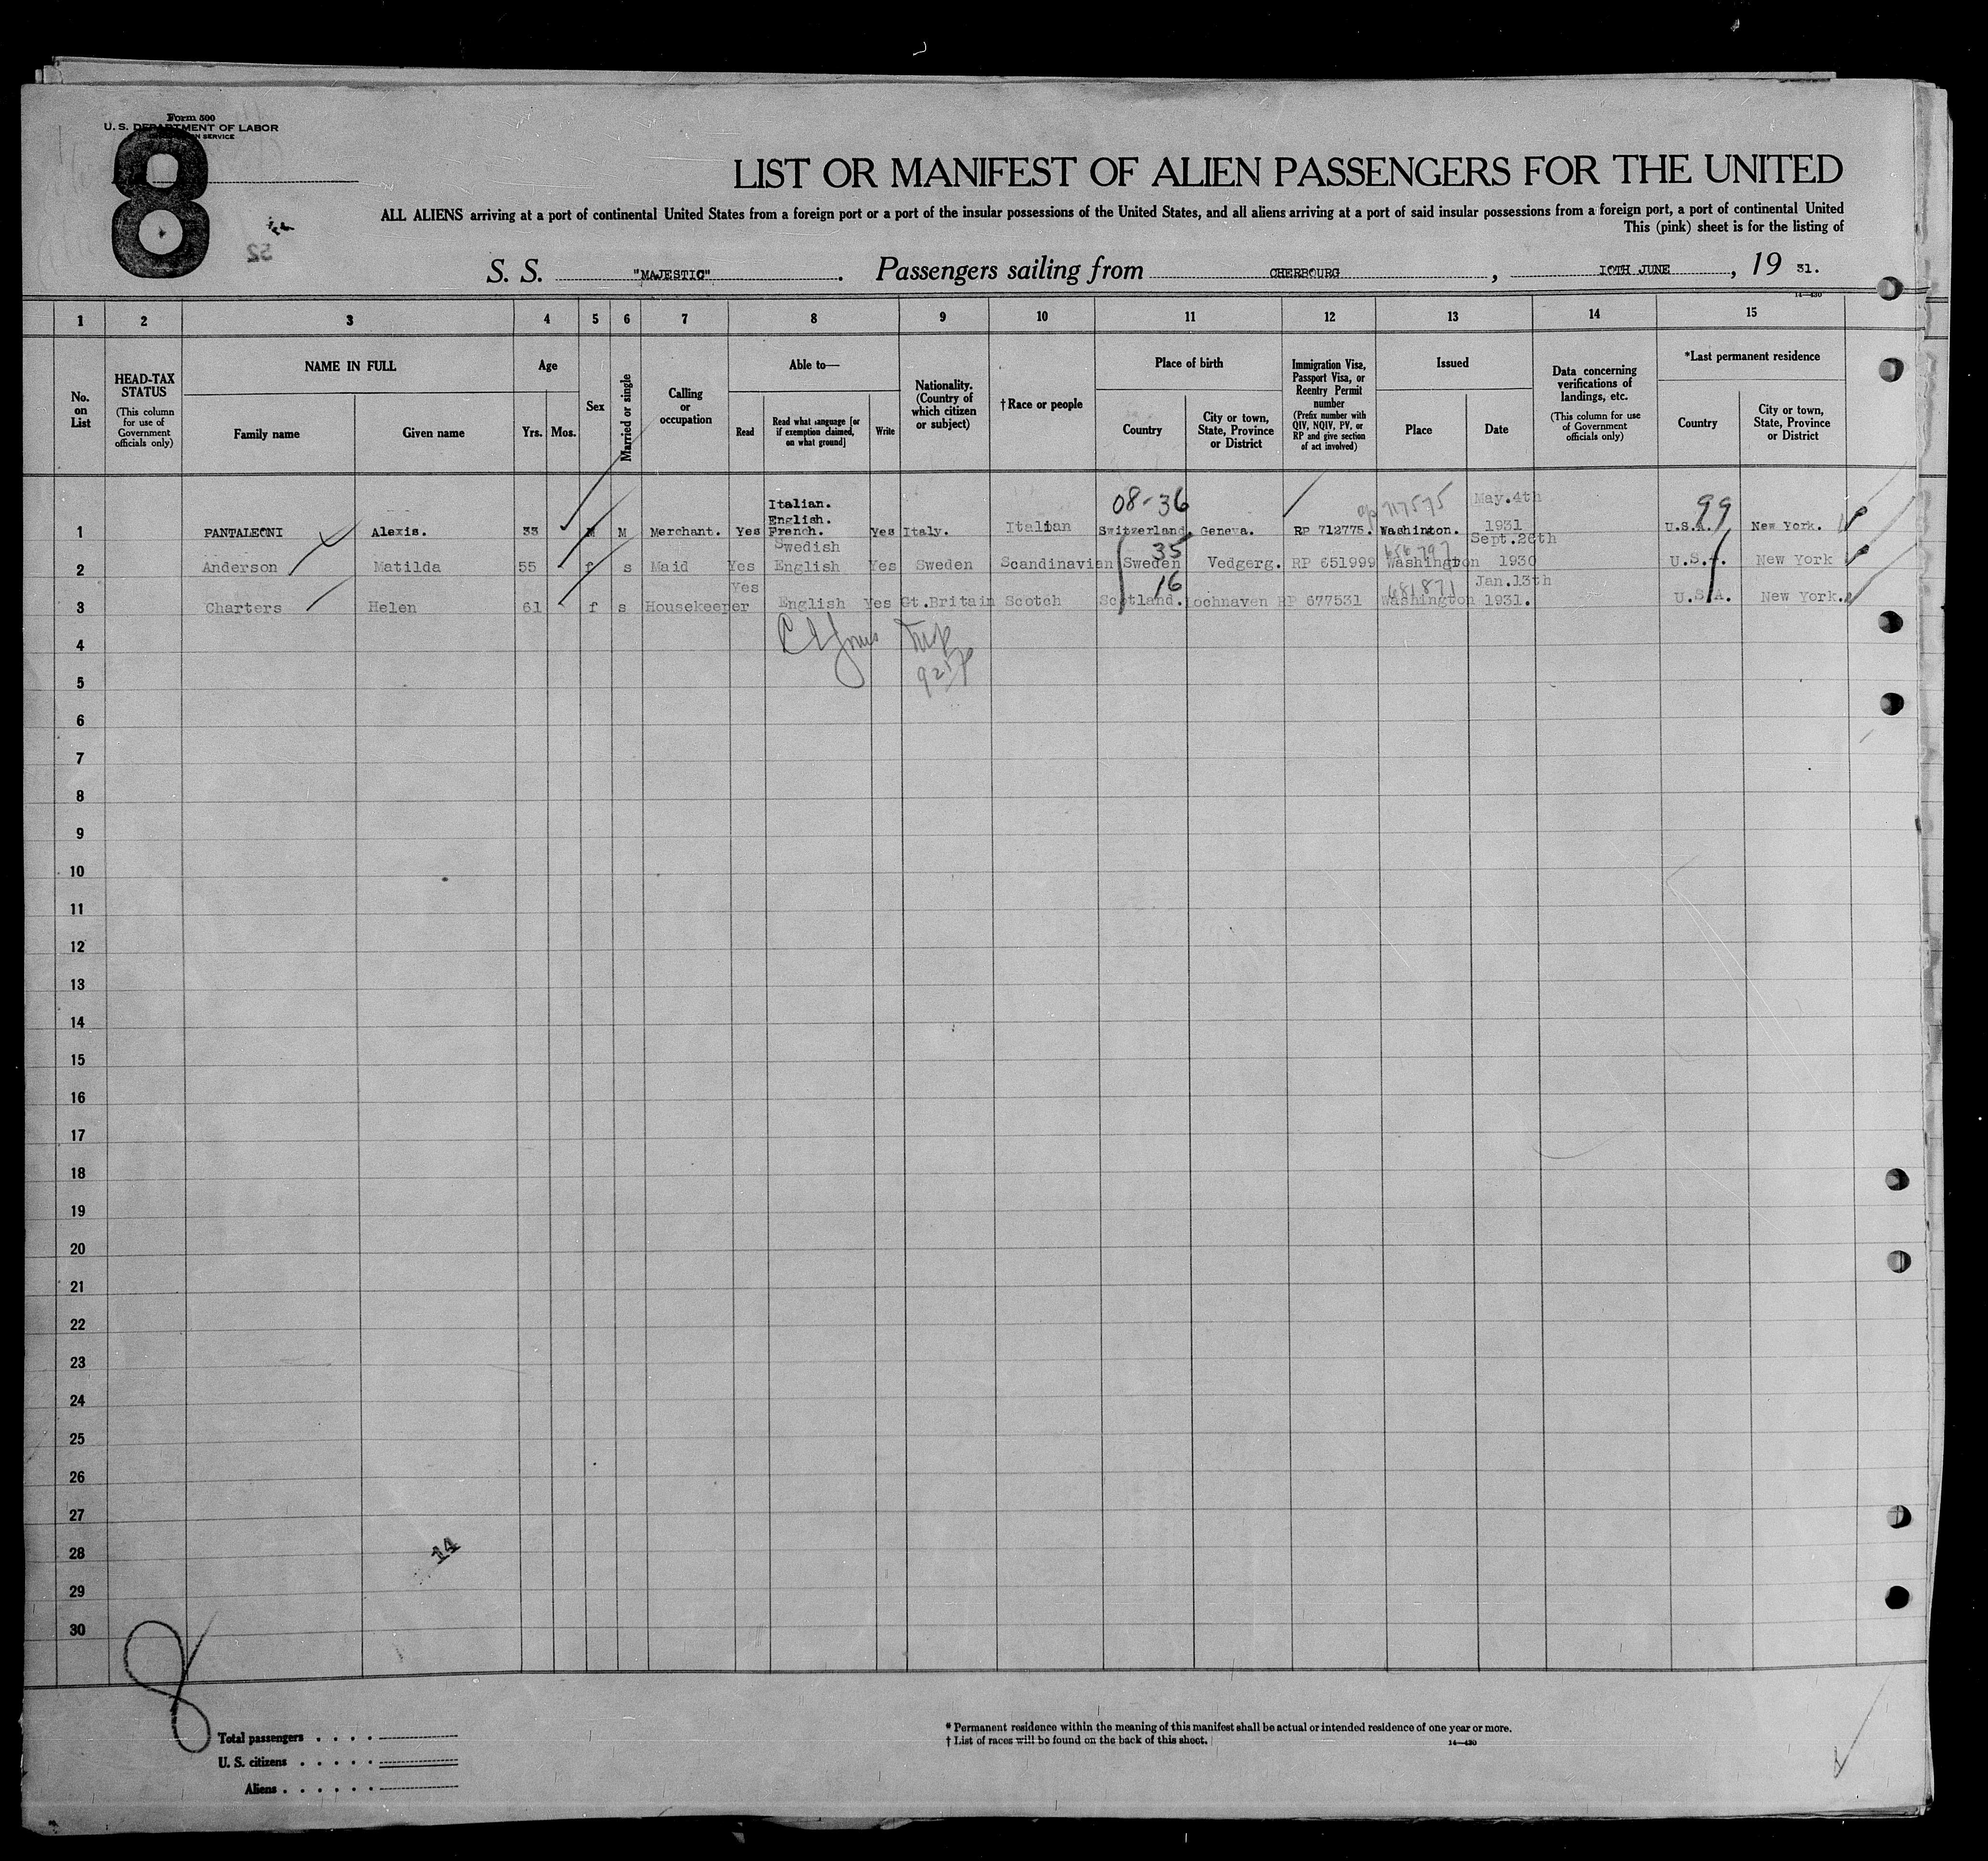 Form 500
U. S. DEPARTMENT OF LABOR
SERVICE
8
52
LIST OR MANIFEST OF ALIEN PASSENGERS FOR THE UNITED
ALL ALIENS arriving at a port of continental United States from a foreign port or a port of the insular possessions of the United States, and all aliens arriving at a port of said insular possessions from a foreign port, a port of continental United
This (pink) sheet is for the listing of
S. S. "MAJESTIC". Passengers sailing from CHERBOURG, 10TH JUNE, 19 31.
14—430
1 2 3 4 5 6 7 8 9 10 11 12 13 14 15
No. on List
HEAD-TAX STATUS (This column for use of Government officials only)
NAME IN FULL
Family name Given name
Age
Yrs. Mos.
Sex
Married or single
Calling or occupation
Able to—
Read Read what language [or if exemption claimed, on what ground] Write
Nationality. (Country of which citizen or subject)
† Race or people
Place of birth
Country City or town, State, Province or District
Immigration Visa, Passport Visa, or Reentry Permit number (Prefix number with QIV, NQIV, PV, or RP and give section of act involved)
Issued
Place Date
Data concerning verifications of landings, etc. (This column for use of Government officials only)
*Last permanent residence
Country City or town, State, Province or District
08-36 717575 99
1 PANTALEONI Alexis. 33 M M Merchant. Yes Italian. English. French. Yes Italy. Italian Switzerland. Geneva. RP 712775. Washinton. May.4th 1931 U.S.A. New York.
35 656797
2 Anderson Matilda 55 f s Maid Yes Swedish English Yes Sweden Scandinavian Sweden Vedgerg. RP 651999 Washington Sept.26th 1930 U.S.A. New York
16 681871
3 Charters Helen 61 f s Housekeeper Yes English Yes Gt.Britain Scotch Scotland. Lochnaven RP 677531 Washington Jan.13th 1931. U.S.A. New York.
4
5
6
7
8
9
10
11
12
13
14
15
16
17
18
19
20
21
22
23
24
25
26
27
28
29
30
14
8
Total passengers . . . .
U. S. citizens . . . . .
Aliens . . . . . .
* Permanent residence within the meaning of this manifest shall be actual or intended residence of one year or more.
† List of races will be found on the back of this sheet.
14—430